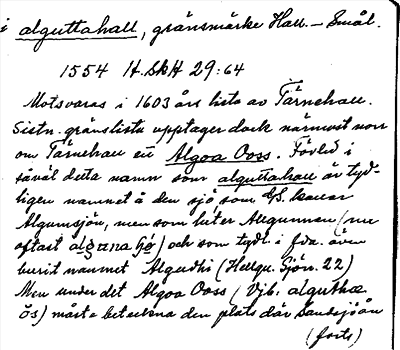 i alguttahall, gränsmärke Hall. – Smål.
1554 H. Sk H 29:64
Motsvaras i 1603 års lista av Tärnehall.
gränslista upptager dock närmast norr
om Tärnehall en Algoa Ooss. Förled i
såväl detta namn som alguttahall är tyd-
ligen namnet å den sjö som GS. kallar
Algumsjön, men som heter Allgunnen (nu
oftast) och som tydl. i fda. även
burit namnet Algudhi (Hellqu. Sjön. 22)
Men under det Algoa Ooss (Vjb. alguthae
ös) måste beteckna den plats där Sandsjöån
(forts)